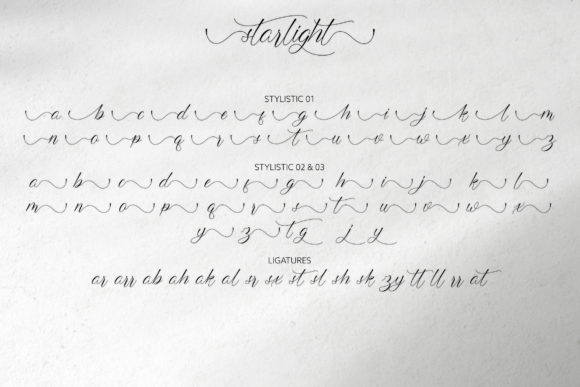 starlight
STYLISTIC 01
a b c d e f g h i j k l m
n o p q r s t u v w x y z
STYLISTIC 02 & 03
a b c d e f g h i j k l
m n o p q r s t u v w x
y z t g j y
LIGATURES
ar arr ab ah ak al sr sx st sl sh sk zy tt ll rr at